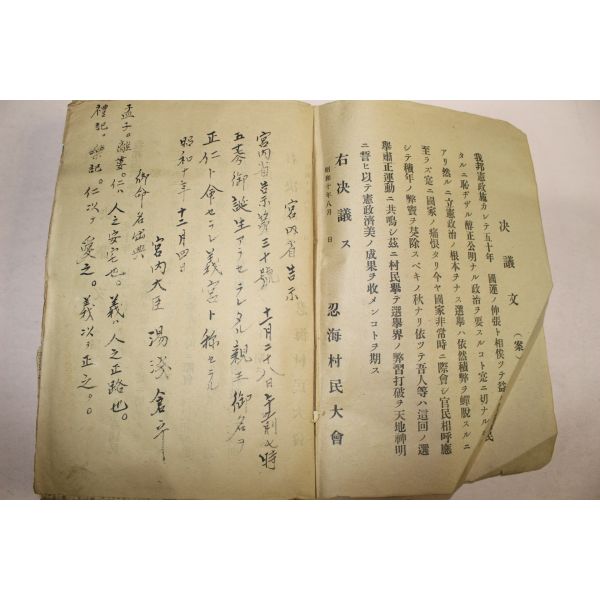 決議文(案)
我邦憲政施カレテ五十年 國運ノ伸張ト相俟ツテ益 民
タルニ恥ヂザル醇正公明ナル政治ヲ要スルコト寔ニ切ナル
アリ然ルニ立憲政治ノ根本ヲナス選擧ハ依然積弊ヲ蟬脫スルニ
至ラズ寔ニ國家ノ痛恨タリ今ヤ國家非常時ニ際會シ官民相呼應
シテ積年ノ弊竇ヲ芟除スベキノ秋ナリ依ツテ吾人等ハ這回ノ選
擧肅正運動ニ共鳴シ茲ニ村民擧テ選擧界ノ弊習打破ヲ天地神明
ニ誓ヒ以テ憲政濟美ノ成果ヲ收メンコトヲ期ス
右決議ス
昭和十年八月 日
忍海村民大會
宮内省告示
宮内省告示第三十號
十一月二十八日午前七時
五十 分御誕生アラセラレタル親王御名ヲ
正仁ト命セラレ義宮ト称セラル
昭和十年十二月四日
宮内大臣 湯淺倉平
御命名出典
孟子。離婁。仁ハ人之安宅也。義ハ人之正路也。
禮記。樂記。仁以テ愛之。義以テ正之。